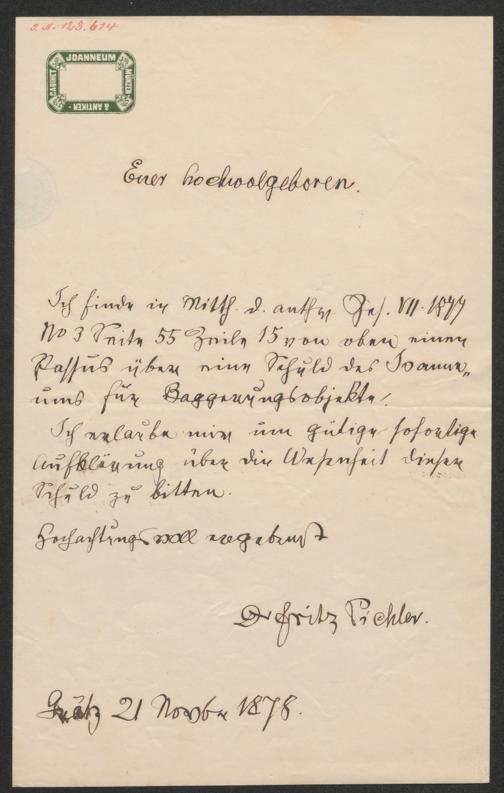 I.N. 123.614
JOANNEUM
MÜNZEN-
& ANTIKEN-
CABINET
Euer Hochwolgeboren.
Ich finde in Mitth. d. anthr. Ges. VII. 1877
No 3 Seite 55 Zeile 15 von oben einen
Passus über eine Schuld des Joanne„
ums für Baggerungsobjekte.
Ich erlaube mir um gütige sofortige
Aufklärung über die Wesenheit dieser
Schuld zu bitten.
Hochachtungsvoll ergebenst
Dr Fritz Pichler.
Gratz 21 Novbr 1878.